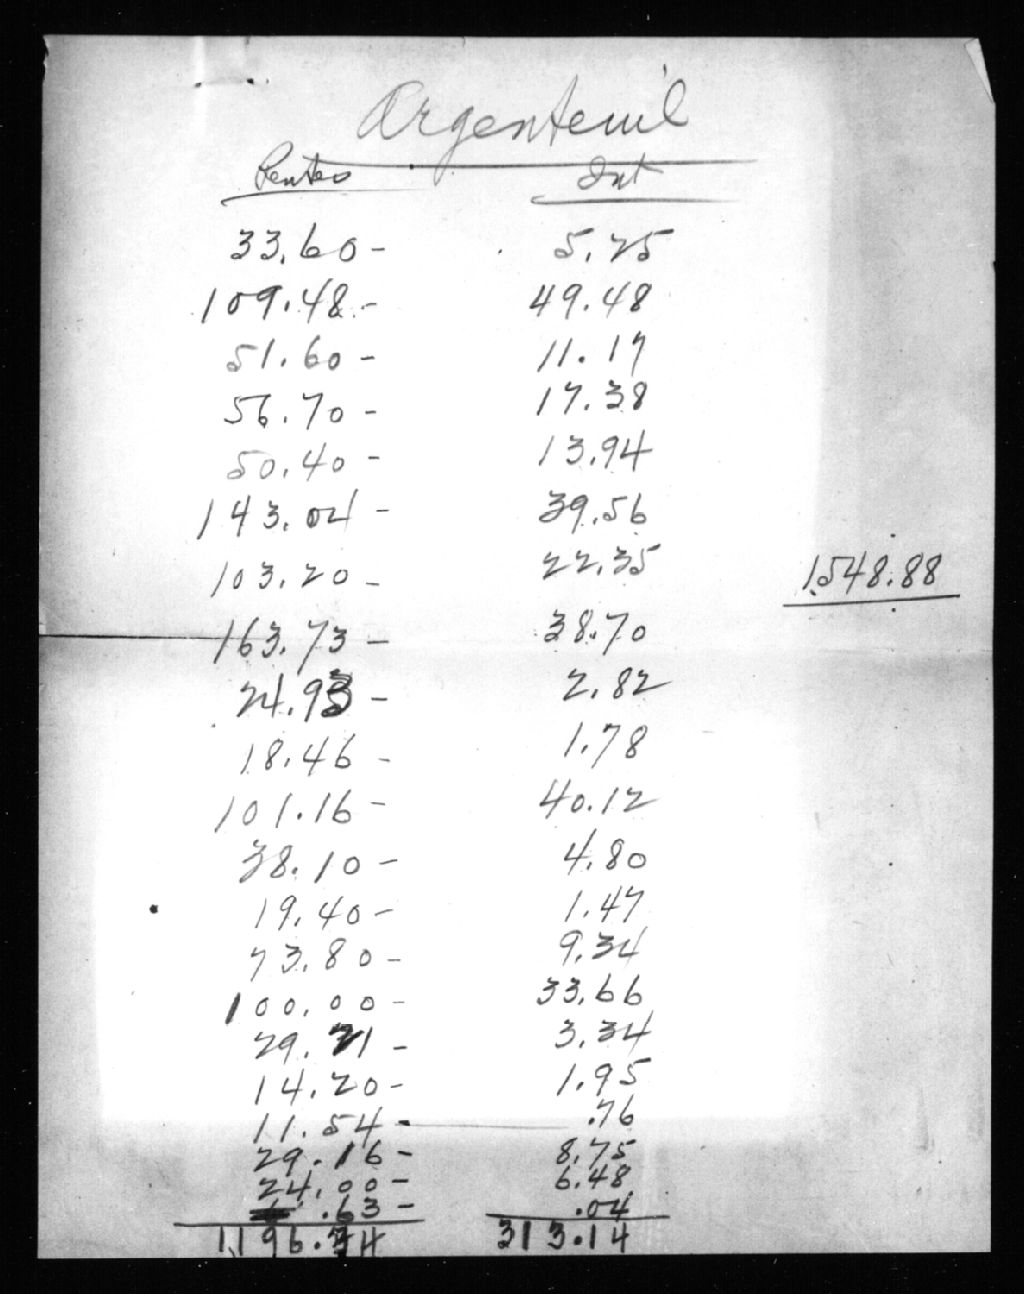 Argenteuil
Rentes Int
33.60 - 5.25
109.48 - 49.48
51.60 - 11.17
56.70 - 17.38
50.40 - 13.94
143.04 - 39.56
103.20 - 22.35 1,548.88
163.73 - 38.70
24.93 - 2.82
18.46 - 1.78
101.16 - 40.12
38.10 - 4.80
19.40 - 1.47
73.80 - 9.34
100.00 - 33.66
29.21 - 3.34
14.20 - 1.95
11.54 - .76
29.16 - 8.75
24.00 - 6.48
.63 - .04
1,196.34 313.14